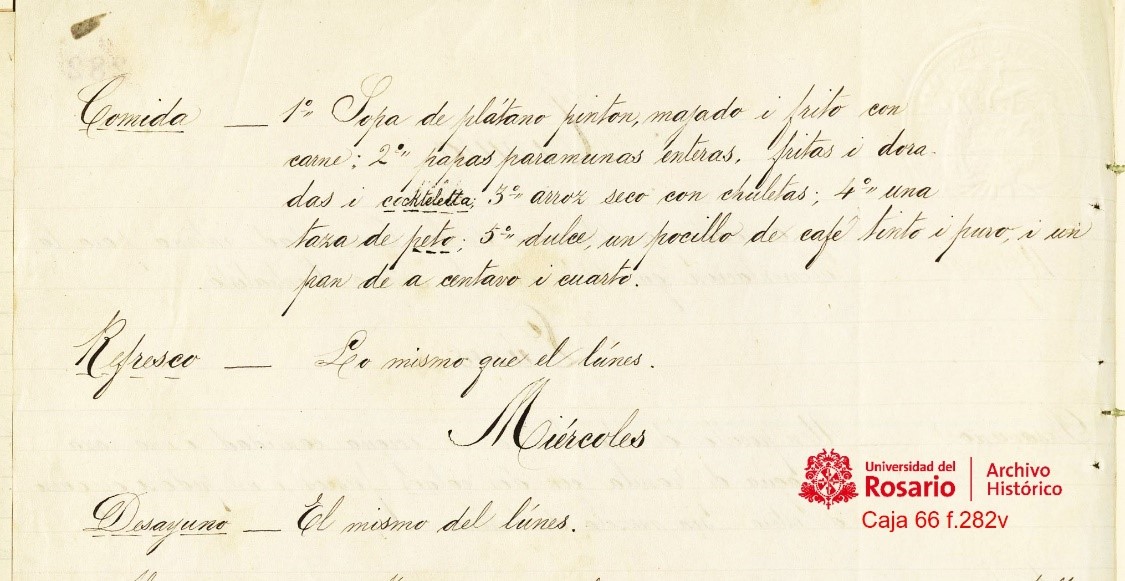 Comida — 1º Sopa de plátano pinton, majado i frito con
carne; 2º papas paramunas enteras, fritas i dora-
das i cockteletta; 3º arroz seco con chuletas; 4º una
taza de peto; 5º dulce, un pocillo de café tinto i puro, i un
pan de a centavo i cuarto.
Refresco — Lo mismo que el lúnes.
Miércoles
Universidad del
Rosario
Archivo
Histórico
Caja 66 f.282v
Desayuno — El mismo del lúnes.